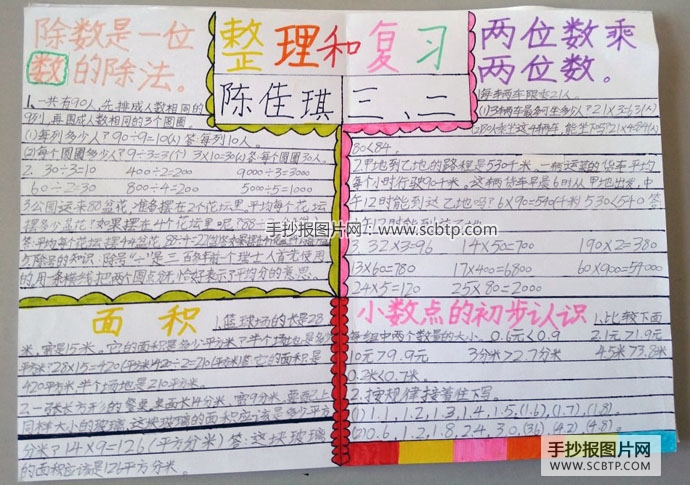 整理和复习
陈佳琪 三、二
除数是一位
数的除法。
1、一共有90人,先排成人数相同的
9列,再围成人数相同的3个圆圈
(1)每列多少人?90÷9=10(人)答每列10人。
(2)每个圆圈多少人?9÷3=3(个) 3×10=30(人)答:每个圆圈30人。
2. 30÷3=10 400÷2=200 9000÷3=3000
60÷2=30 800÷4=200 5000÷5=1000
3公园运来88盆花,准备摆在2个花坛里,平均每个花坛
摆多少盆花?如果摆在4个花坛里呢?88÷2
答:平均每个花坛摆44盆花
点除号的知识:除号“÷”是三百年前一个瑞士人首先使用
的,用一条横线把两个圆点隔,恰好表示了平均分的意思。
两位数乘
两位数。
1每辆车限乘21人。
(1)3辆车最多可坐多少人?21×3=63(人)
80<84.
2.甲地到乙地的路程是530千米,一辆运菜的货车平均
每个小时行驶90千米。这辆货车早晨6时从甲地出发,中
午12时能到达乙地吗?6×90=540(千米)530<540答
3. 32×3=96 14×50=700 190×2=380
13×60=780 17×400=6800 60×900=54000
24×5=120 25×80=2000
手抄报图片网:www.scbtp.com
面积
1、篮球场的长是28
米,宽是15米。它的面积是多少平方米?半个场地是多少
平方米?28×15=420(平方米)420÷2=210(平方米)答:它的面积是
420平方米,半个场地是210平方米。
同样大小的玻璃,这块玻璃的面积应该是多少平方
分米?14×9=126(平方分米)答:这块玻璃
的面积应该是126平方分米。
小数点的初步认识
1、比较下面
每组中两个数量的大小。0.6元<0.9 2.1元>1.9元
10元>9.9元 3分米>2.7分米 4.5米>3.8米
0.3米<0.7米
2.按规律接着往下写。
(1)1.1,1.2,1.3,1.4,1.5,(1.6),(1.7),(1.8)
(2)0.6,1.2,1.8,2.4,3.0,(3.6),(4.2),(4.8)
手抄报图片网
WWW.SCBTP.COM